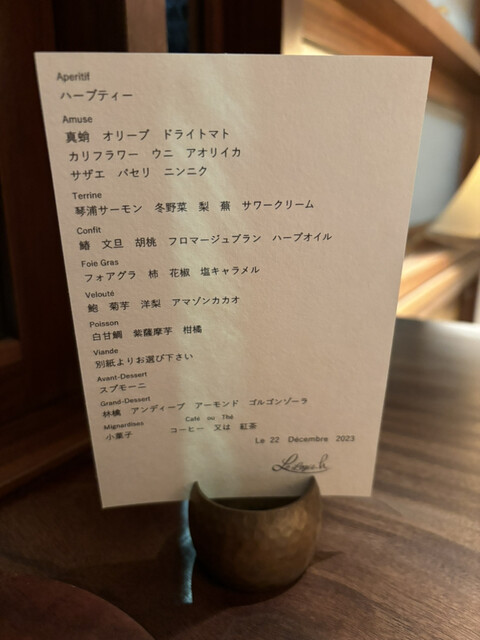 Aperitif
ハーブティー
Amuse
真蛸 オリーブ ドライトマト
カリフラワー ウニ アオリイカ
サザエ パセリ ニンニク
Terrine
琴浦サーモン 冬野菜 梨 蕪 サワークリーム
Confit
鰆 文旦 胡桃 フロマージュブラン ハーブオイル
Foie Gras
フォアグラ 柿 花椒 塩キャラメル
Velouté
鮑 菊芋 洋梨 アマゾンカカオ
Poisson
白甘鯛 紫薩摩芋 柑橘
Viande
別紙よりお選び下さい
Avant-Dessert
スプモーニ
Grand-Dessert
林檎 アンディーブ アーモンド ゴルゴンゾーラ
Mignardises Café ou Thé
小菓子 コーヒー 又は 紅茶
Le 22 Décembre 2023